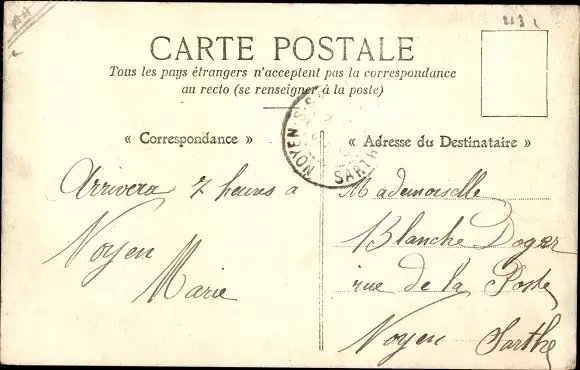 AA
213
CARTE POSTALE
Tous les pays étrangers n'acceptent pas la correspondance
au recto (se renseigner à la poste)
NOYEN-S-S
SARTHE
« Correspondance »
Arrivera 7 heures à
Noyen
Marie
« Adresse du Destinataire »
Mademoiselle
Blanche Doger
rue de la Poste
Noyen Sarthe